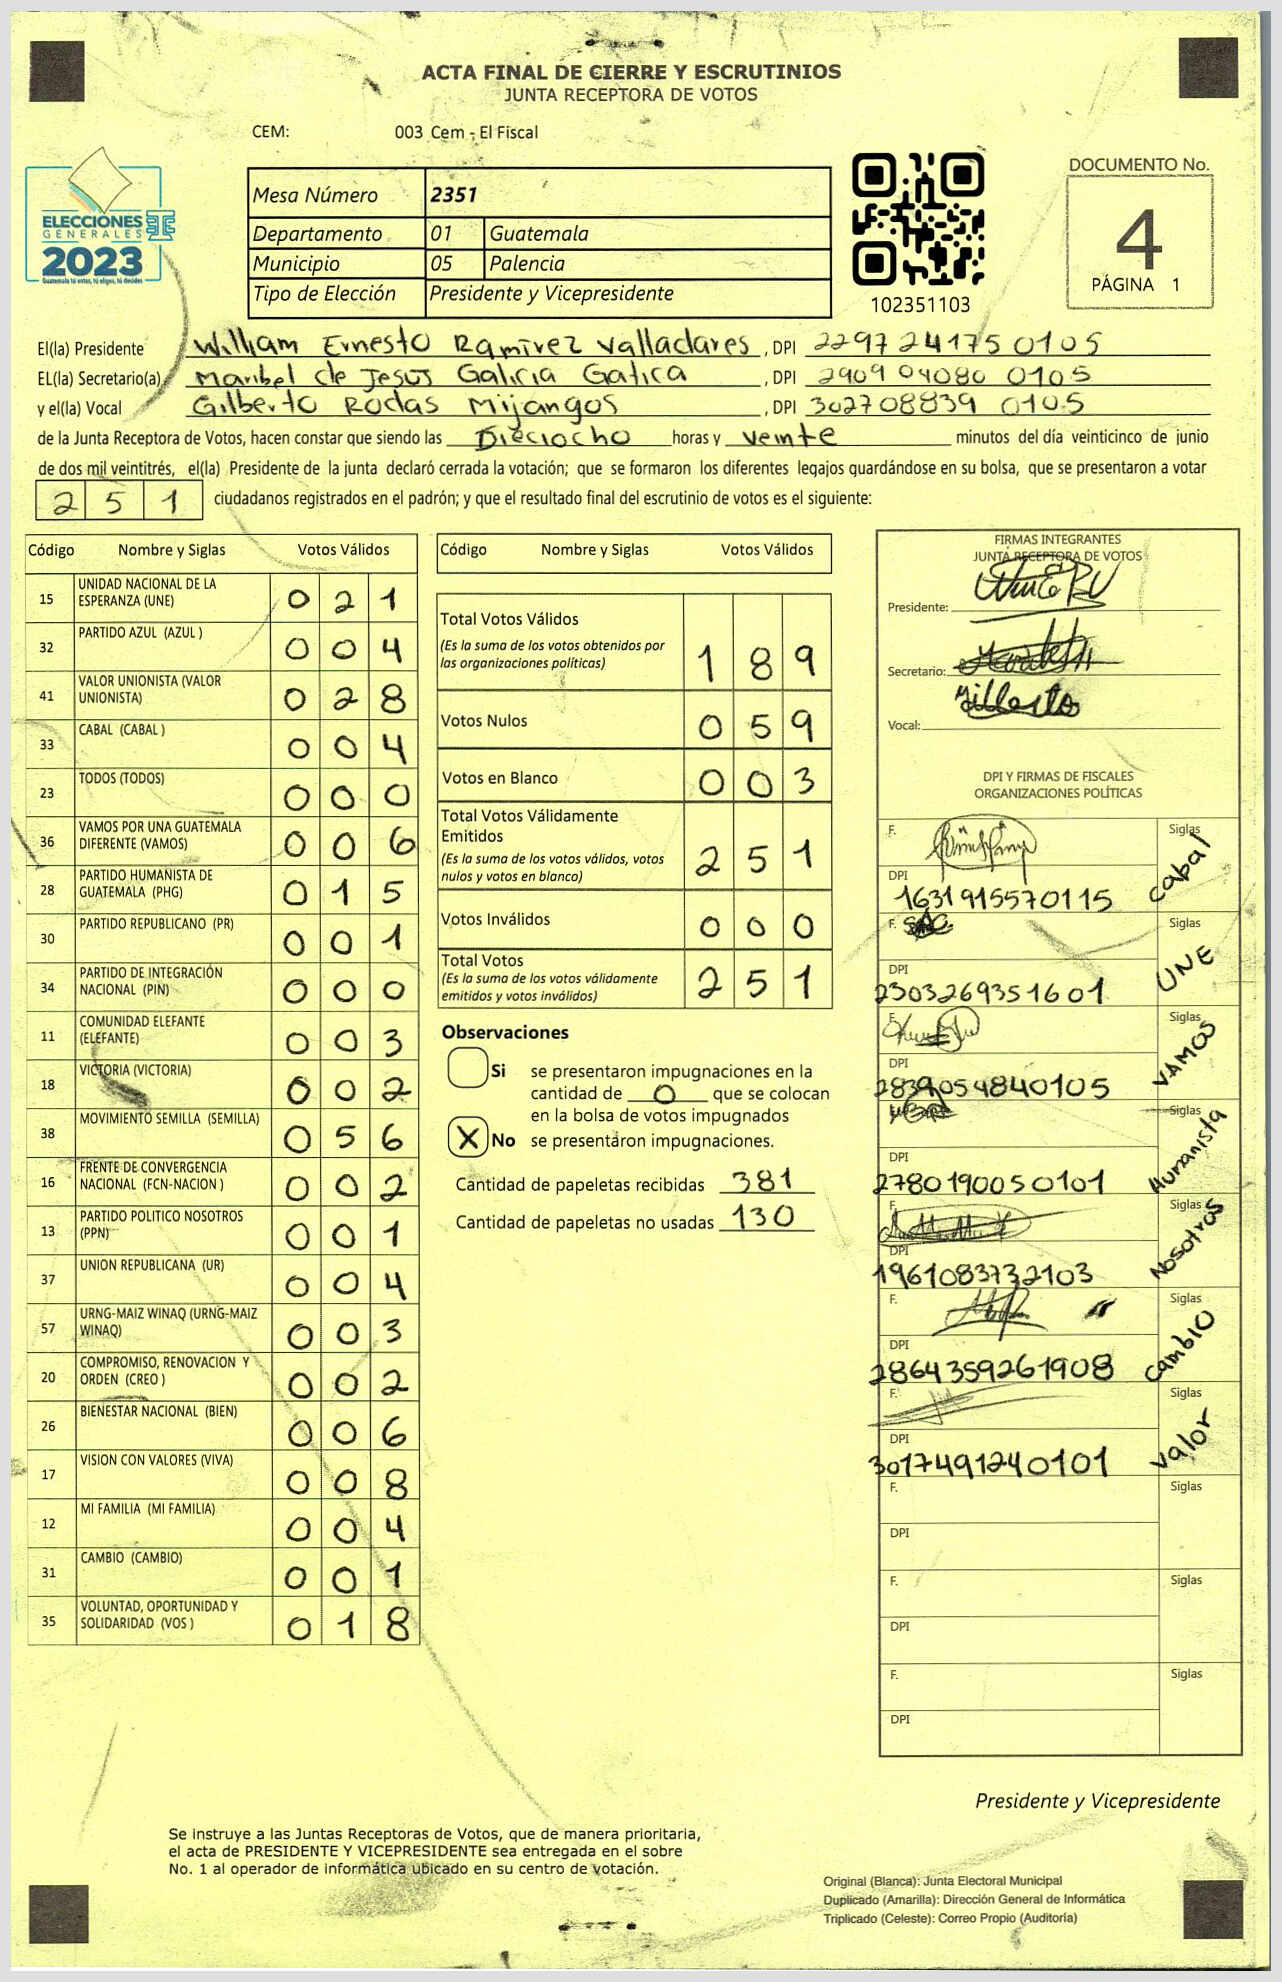 ACTA FINAL DE CIERRE Y ESCRUTINIOS
JUNTA RECEPTORA DE VOTOS
CEM: 003 Cem - El Fiscal
ELECCIONES
GENERALES
2023
Guatemala tú votas, tú eliges, tú decides
Mesa Número 2351
Departamento 01 Guatemala
Municipio 05 Palencia
Tipo de Elección Presidente y Vicepresidente
102351103
DOCUMENTO No.
4
PÁGINA 1
El(la) Presidente William Ernesto Ramirez Valladares , DPI 2297241750105
EL(la) Secretario(a) Maribel de Jesus Galicia Gatica , DPI 2909 04080 0105
y el(la) Vocal Gilberto Rodas Mijangos , DPI 302708839 0105
de la Junta Receptora de Votos, hacen constar que siendo las Dieciocho horas y veinte minutos del día veinticinco de junio
de dos mil veintitrés, el(la) Presidente de la junta declaró cerrada la votación; que se formaron los diferentes legajos guardándose en su bolsa, que se presentaron a votar
251 ciudadanos registrados en el padrón; y que el resultado final del escrutinio de votos es el siguiente:
Código Nombre y Siglas Votos Válidos
15 UNIDAD NACIONAL DE LA ESPERANZA (UNE) 021
32 PARTIDO AZUL (AZUL ) 004
41 VALOR UNIONISTA (VALOR UNIONISTA) 028
33 CABAL (CABAL ) 004
23 TODOS (TODOS) 000
36 VAMOS POR UNA GUATEMALA DIFERENTE (VAMOS) 006
28 PARTIDO HUMANISTA DE GUATEMALA (PHG) 015
30 PARTIDO REPUBLICANO (PR) 001
34 PARTIDO DE INTEGRACIÓN NACIONAL (PIN) 000
11 COMUNIDAD ELEFANTE (ELEFANTE) 003
18 VICTORIA (VICTORIA) 002
38 MOVIMIENTO SEMILLA (SEMILLA) 056
16 FRENTE DE CONVERGENCIA NACIONAL (FCN-NACION ) 002
13 PARTIDO POLITICO NOSOTROS (PPN) 001
37 UNION REPUBLICANA (UR) 004
57 URNG-MAIZ WINAQ (URNG-MAIZ WINAQ) 003
20 COMPROMISO, RENOVACION Y ORDEN (CREO ) 002
26 BIENESTAR NACIONAL (BIEN) 006
17 VISION CON VALORES (VIVA) 008
12 MI FAMILIA (MI FAMILIA) 004
31 CAMBIO (CAMBIO) 001
35 VOLUNTAD, OPORTUNIDAD Y SOLIDARIDAD (VOS ) 018
Código Nombre y Siglas Votos Válidos
Total Votos Válidos
(Es la suma de los votos obtenidos por
las organizaciones políticas) 189
Votos Nulos 059
Votos en Blanco 003
Total Votos Válidamente
Emitidos
(Es la suma de los votos válidos, votos
nulos y votos en blanco) 251
Votos Inválidos 000
Total Votos
(Es la suma de los votos válidamente
emitidos y votos inválidos) 251
Observaciones
Si se presentaron impugnaciones en la
cantidad de 0 que se colocan
en la bolsa de votos impugnados
X No se presentaron impugnaciones.
Cantidad de papeletas recibidas 381
Cantidad de papeletas no usadas 130
FIRMAS INTEGRANTES
JUNTA RECEPTORA DE VOTOS
Presidente:
Secretario:
Vocal: Gilberto
DPI Y FIRMAS DE FISCALES
ORGANIZACIONES POLÍTICAS
F. Siglas
DPI
1631915570115 Cabal
F. Siglas
DPI
2303269351601 UNE
F. Siglas
DPI
2839054840105 VAMOS
Siglas
DPI
2780190050101 Humanista
F. Siglas
DPI
1961083732103 Nosotros
F. Siglas
DPI
2864359261908 Cambio
F. Siglas
DPI
3017491240101 Valor
F. Siglas
DPI
F. Siglas
DPI
F. Siglas
DPI
Presidente y Vicepresidente
Se instruye a las Juntas Receptoras de Votos, que de manera prioritaria,
el acta de PRESIDENTE Y VICEPRESIDENTE sea entregada en el sobre
No. 1 al operador de informática ubicado en su centro de votación.
Original (Blanca): Junta Electoral Municipal
Duplicado (Amarilla): Dirección General de Informática
Triplicado (Celeste): Correo Propio (Auditoría)